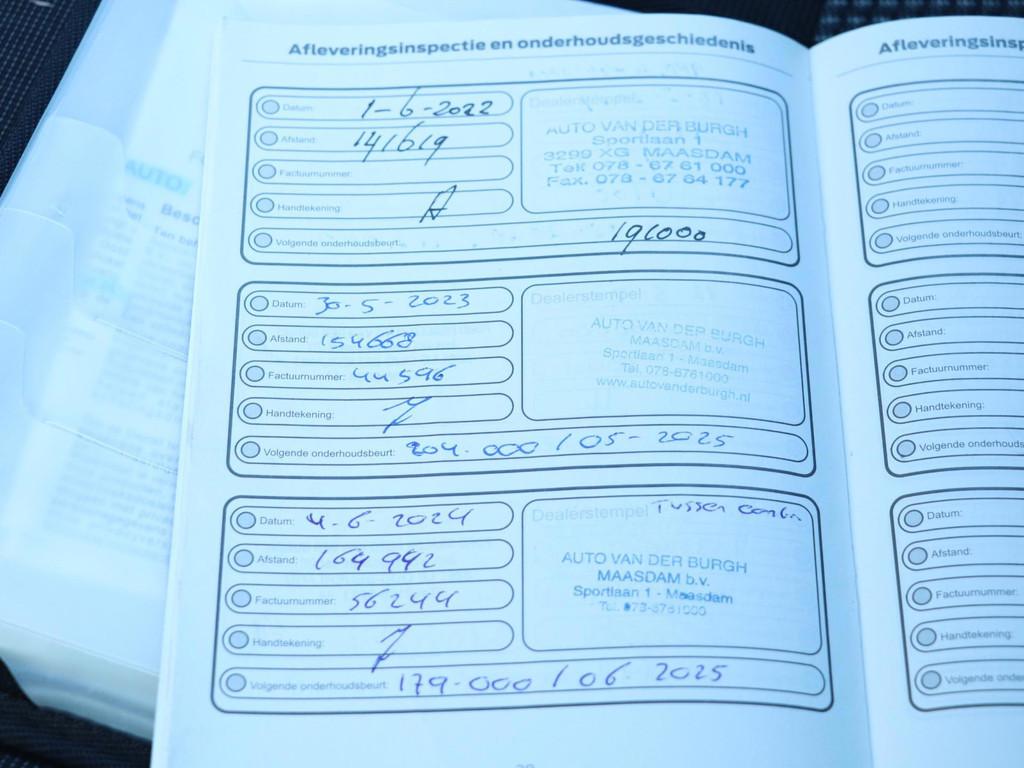 Afleveringsinspectie en onderhoudsgeschiedenis
Datum: 1-6-2022
Afstand: 141619
Factuurnummer:
Handtekening:
Volgende onderhoudsbeurt: 191000
Dealerstempel
AUTO VAN DER BURGH
Sportlaan 1
3299 XG MAASDAM
Tel: 078 - 67 61 000
Fax. 078 - 67 64 177
Datum: 30-5-2023
Afstand: 154668
Factuurnummer: 44596
Handtekening:
Volgende onderhoudsbeurt: 204.000 / 05-2025
Dealerstempel
AUTO VAN DER BURGH
MAASDAM b.v.
Sportlaan 1 - Maasdam
Tel. 078-6761000
www.autovanderburgh.nl
Datum: 4-6-2024
Afstand: 164942
Factuurnummer: 56244
Handtekening:
Volgende onderhoudsbeurt: 179-000 / 06-2025
Dealerstempel Tussen
AUTO VAN DER BURGH
MAASDAM b.v.
Sportlaan 1 - Maasdam
Afleveringsinsp
Datum:
Afstand:
Factuurnummer:
Handtekening:
Volgende onderhoudsbeurt:
Datum:
Afstand:
Factuurnummer:
Handtekening:
Volgende onderhouds
Datum:
Afstand:
Factuurnummer:
Handtekening:
Volgende onde